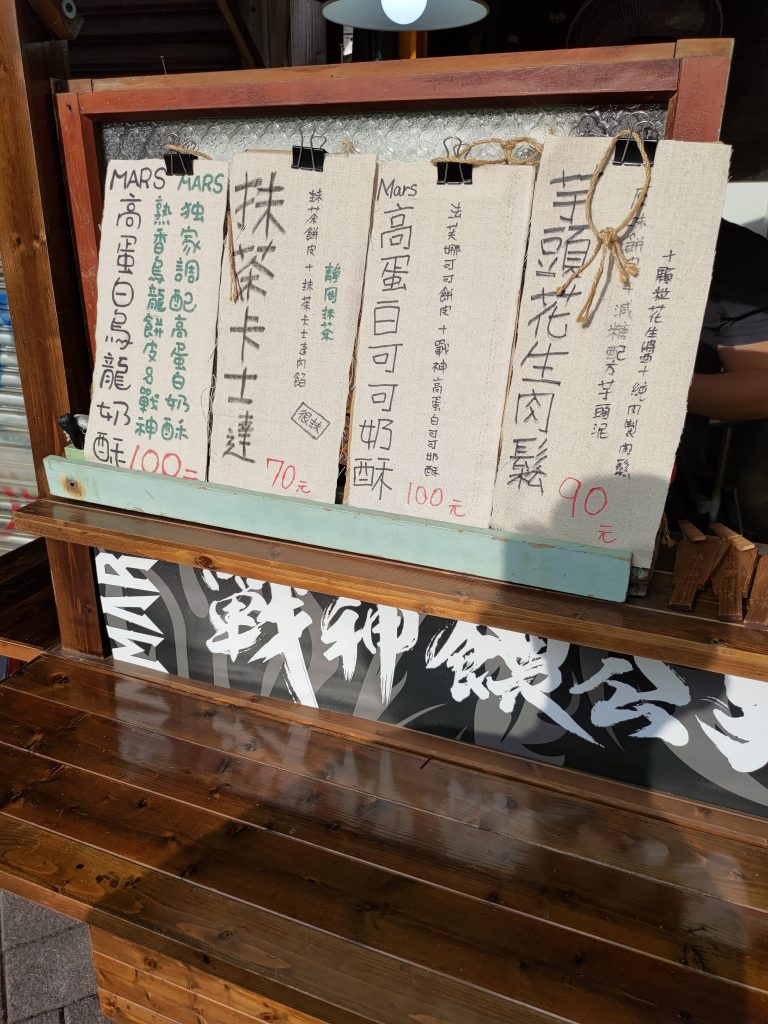 MARS
高蛋白烏龍奶酥
MARS
独家調配高蛋白奶酥
熟香烏龍餅皮&戰神
100元
抹茶卡士達
抹茶餅皮+抹茶卡士達內餡
靜岡抹茶
很抹
70元
Mars
高蛋白可可奶酥
法芙娜可可餅皮+戰神高蛋白可可奶酥
100元
芋頭花生肉鬆
味餅皮+減糖配方芋頭泥
+顆粒花生醬+純肉製肉鬆
90元
MAR
戰神餵公